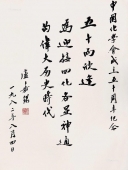 中国化学会成立五十周年纪念
五十而欣逢
为迎接四化各显神通
的伟大历史时代
卢嘉锡
一九八二年八月四日